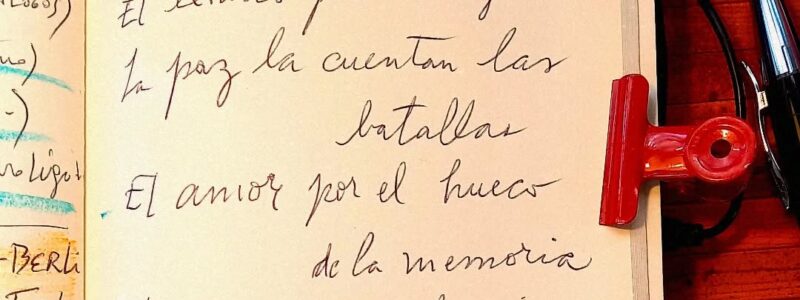 El
La paz la cuentan las
batallas
El amor por el hueco
de la memoria
-BERLI